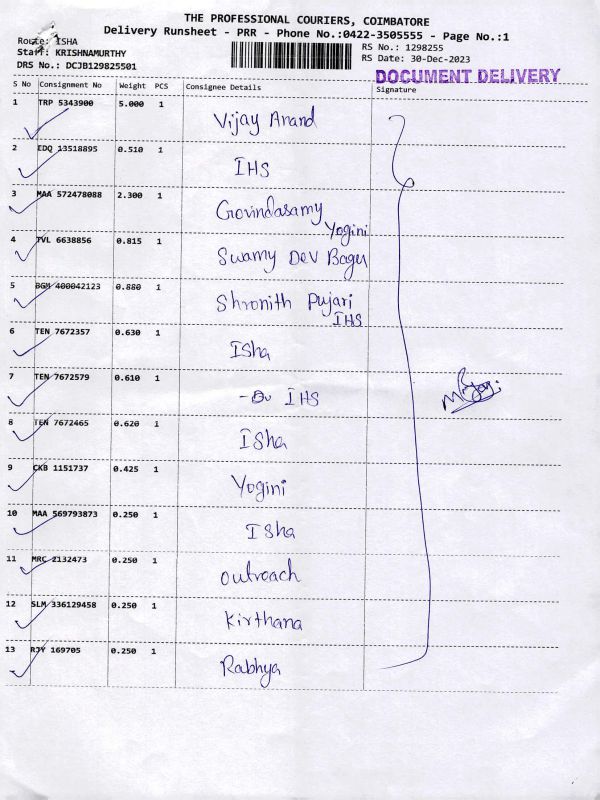 THE PROFESSIONAL COURIERS, COIMBATORE
Delivery Runsheet - PRR - Phone No.:0422-3505555 - Page No.:1
Route: ISHA
Staff: KRISHNAMURTHY
DRS No.: DCJB129825501
RS No.: 1298255
RS Date: 30-Dec-2023
DOCUMENT DELIVERY
S No Consignment No Weight PCS Consignee Details Signature
1 TRP 5343900 5.000 1 Vijay Anand
2 EDQ 13518895 0.510 1 IHS
3 MAA 572478088 2.300 1 Govindasamy
Yogini
4 TVL 6638856 0.815 1 Swamy Dev
5 BGM 400042123 0.880 1 Shronith Pujari
IHS
6 TEN 7672357 0.630 1 Isha
7 TEN 7672579 0.610 1 IHS
8 TEN 7672465 0.620 1 Isha
9 CKB 1151737 0.425 1 Yogini
10 MAA 569793873 0.250 1 Isha
11 MRC 2132473 0.250 1 outroach
12 SLM 336129458 0.250 1 Kirthana
13 RJY 169705 0.250 1 Rabhya